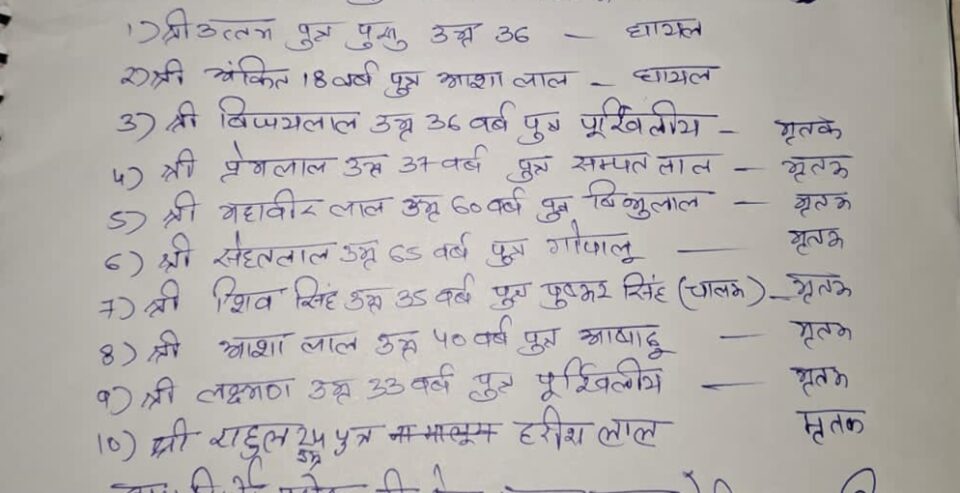 1) श्री उत्तम पुत्र पुसु उम्र 36 — घायल
2) श्री अंकित 18 वर्ष पुत्र आशा लाल — घायल
3) श्री विजयलाल उम्र 36 वर्ष पुत्र — मृतक
4) श्री प्रेमलाल उम्र 37 वर्ष पुत्र सम्पत लाल — मृतक
5) श्री महावीर लाल उम्र 60 वर्ष पुत्र — मृतक
6) श्री उम्र 65 वर्ष पुत्र गोपालू — मृतक
7) श्री शिव सिंह उम्र 35 वर्ष पुत्र पुष्कर सिंह (चालक) — मृतक
8) श्री आशा लाल उम्र 40 वर्ष पुत्र — मृतक
9) श्री लक्ष्मण उम्र 33 वर्ष पुत्र — मृतक
10) श्री राहुल 24 उम्र पुत्र हरीश लाल मृतक